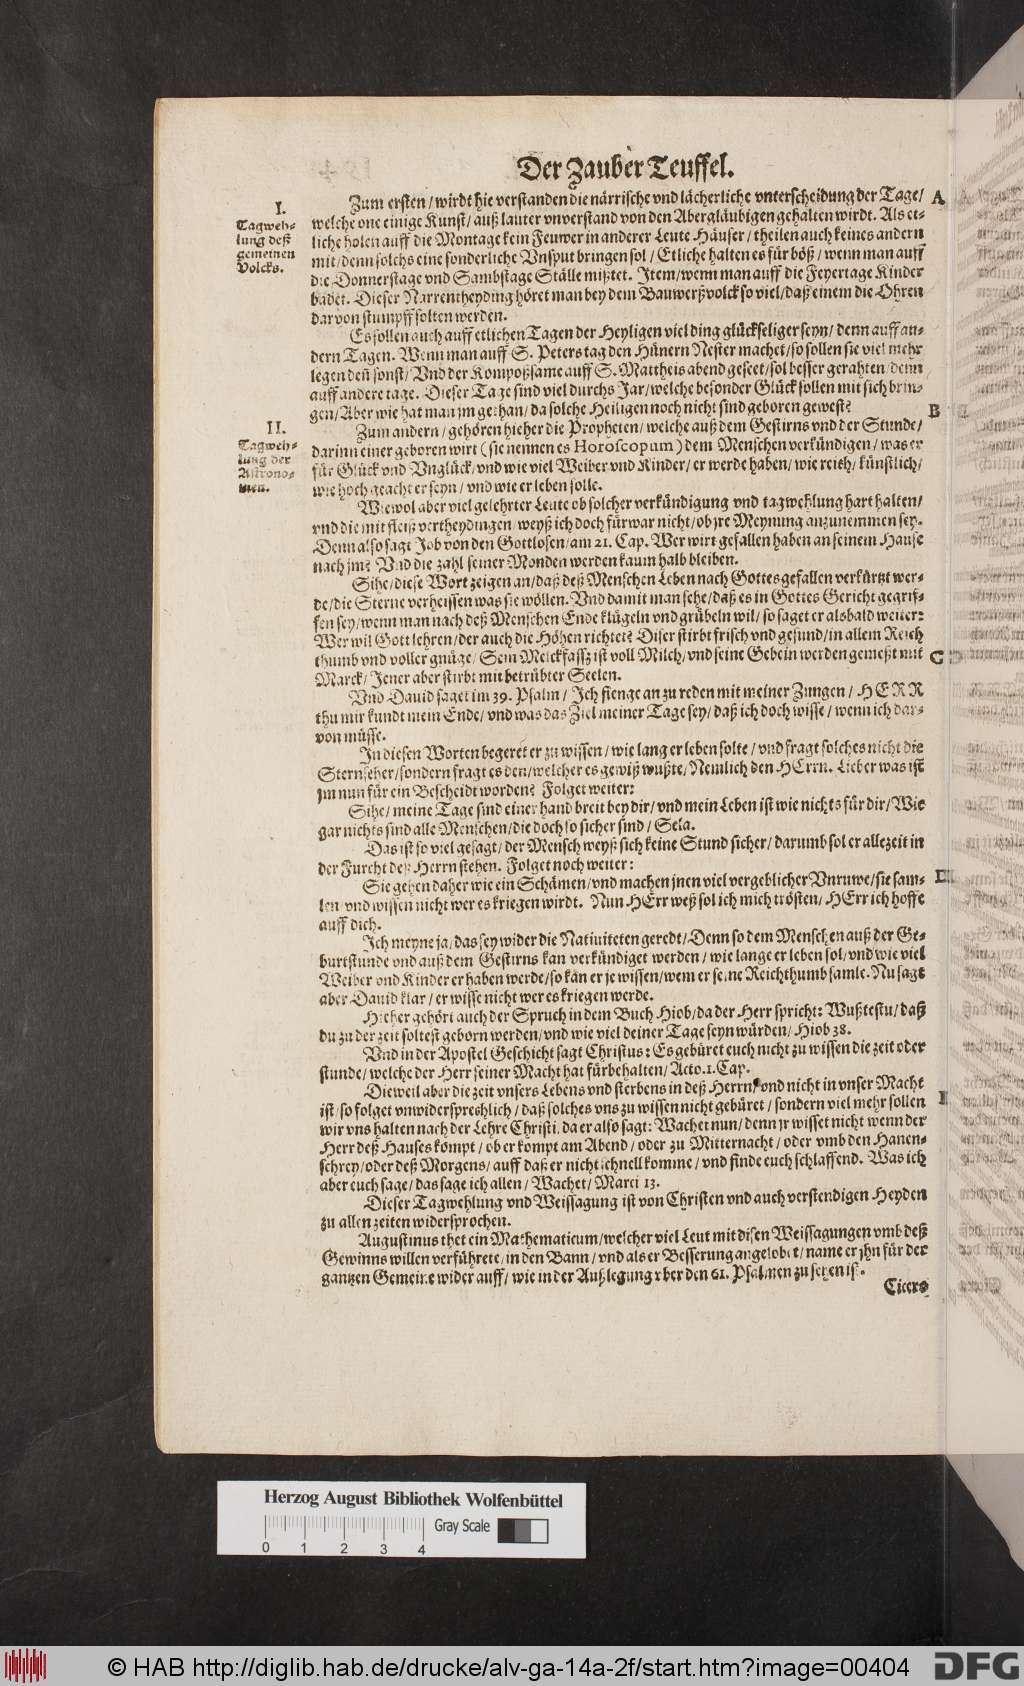 Der Zauber Teuffel.
I.
Tagweh-
lung deß
gemeinen
Volcks.
Zum ersten / wirdt hie verstanden die närrische vnd lächerliche vnterscheidung der Tage /
welche one einige Kunst / auß lauter vnverstand von den Abergläubigen gehalten wirdt. Als et-
liche holen auff die Montage kein Feuwer in anderer Leute Häuser / theilen auch keines andern
mit / denn solchs eine sonderliche Vnsput bringen sol / Etliche halten es für böß / wenn man auff
die Donnerstage vnd Sambstage Ställe mißtet. Item / wenn man auff die Feyertage Kinder
badet. Dieser Narrentheyding höret man bey dem Bauwerßvolck so viel / daß einem die Ohren
darvon stumpff solten werden.
Es sollen auch auff etlichen Tagen der Heyligen viel ding glückseliger seyn / denn auff an-
dern Tagen. Wenn man auff S. Peters tag den Hünern Nester machet / so sollen sie viel mehr
legen deñ sonst / Vnd der Komposßsame auff S. Mattheis abend geseet / sol besser gerahten / denn
auff andere tage. Dieser Tage sind viel durchs Jar / welche besonder Glück sollen mit sich brin-
gen / Aber wie hat man jm gethan / da solche Heiligen noch nicht sind geboren gewest?
II.
Tagweh-
lung der
Astrono-
men.
Zum andern / gehören hieher die Propheten / welche auß dem Gestirns vnd der Stunde /
darinn einer geboren wirt (sie nennen es Horoscopum) dem Menschen verkündigen / was er
für Glück vnd Vnglück / vnd wie viel Weiber vnd Kinder / er werde haben / wie reich / künstlich /
wie hoch geacht er seyn / vnd wie er leben solle.
Wiewol aber viel gelehrter Leute ob solcher verkündigung vnd tagwehlung hart halten /
vnd die mit fleiß vertheydingen / weyß ich doch fürwar nicht / ob jre Meynung anzunemmen sey.
Denn also sagt Job von den Gottlosen / am 21. Cap. Wer wirt gefallen haben an seinem Hause
nach jm? Vnd die zahl seiner Monden werden kaum halb bleiben.
Sihe / diese Wort zeigen an / daß deß Menschen Leben nach Gottes gefallen verkürtzt wer-
de / die Sterne verheissen was sie wöllen. Vnd damit man sehe / daß es in Gottes Gericht gegrif-
fen sey / wenn man nach deß Menschen Ende klügeln vnd grübeln wil / so saget er alsbald weiter:
Wer wil Gott lehren / der auch die Höhen richtet? Diser stirbt frisch vnd gesund / in allem Reich
thumb vnd voller gnüge / Sein Melckfassz ist voll Milch / vnd seine Gebein werden gemeßt mit
Marck / Jener aber stirbt mit betrübter Seelen.
Vnd Dauid saget im 39. Psalm / Ich fienge an zu reden mit meiner Zungen / HERR
thu mir kundt mein Ende / vnd was das Ziel meiner Tage sey / daß ich doch wisse / wenn ich dar-
von müsse.
In diesen Worten begeret er zu wissen / wie lang er leben solte / vnd fragt solches nicht die
Sternseher / sondern fragt es den / welcher es gewiß wußte / Nemlich den HErrn. Lieber was ist
jm nun für ein Bescheidt worden? Folget weiter:
Sihe / meine Tage sind einer hand breit bey dir / vnd mein Leben ist wie nichts für dir / Wie
gar nichts sind alle Menschen / die doch so sicher sind / Sela.
Das ist so viel gesagt / der Mensch weyß sich keine Stund sicher / darumb sol er allezeit in
der Furcht deß Herrn stehen. Folget noch weiter:
Sie gehen daher wie ein Schämen / vnd machen jnen viel vergeblicher Vnruwe / sie sam-
len vnd wissen nicht wer es kriegen wirdt. Nun HErr weß sol ich mich trösten / HErr ich hoffe
auff dich.
Ich meyne ja / das sey wider die Natiuiteten geredt / Denn so dem Menschen auß der Ge-
burtstunde vnd auß dem Gestirns kan verkündiget werden / wie lange er leben sol / vnd wie viel
Weiber vnd Kinder er haben werde / so kan er je wissen / wem er seine Reichthumb samle. Nu sagt
aber Dauid klar / er wisse nicht wer es kriegen werde.
Hieher gehört auch der Spruch in dem Buch Hiob / da der Herr spricht: Wußtestu / daß
du zu der zeit soltest geborn werden / vnd wie viel deiner Tage seyn würden / Hiob 38.
Vnd in der Apostel Geschicht sagt Christus: Es gebüret euch nicht zu wissen die zeit oder
stunde / welche der Herr seiner Macht hat fürbehalten / Acto. 1. Cap.
Dieweil aber die zeit vnsers Lebens vnd sterbens in deß Herrn / vnd nicht in vnser Macht
ist / so folget vnwidersprechlich / daß solches vns zu wissen nicht gebüret / sondern viel mehr sollen
wir vns halten nach der Lehre Christi / da er also sagt: Wachet nun / denn jr wisset nicht wenn der
Herr deß Hauses kompt / ob er kompt am Abend / oder zu Mitternacht / oder vmb den Hanen-
schrey / oder deß Morgens / auff daß er nicht schnell komme / vnd finde euch schlaffend. Was ich
aber euch sage / das sage ich allen / Wachet / Marci 13.
Dieser Tagwehlung vnd Weissagung ist von Christen vnd auch verstendigen Heyden
zu allen zeiten widersprochen.
Augustinus thet ein Mathematicum / welcher viel Leut mit disen Weissagungen vmb deß
Gewinns willen verführete / in den Bann / vnd als er Besserung angelobet / name er jhn für der
gantzen Gemeine wider auff / wie in der Außlegung vber den 61. Psalmen zu sehen ist.
Cicero
A
B
C
D
E
Herzog August Bibliothek Wolfenbüttel
Gray Scale
0 1 2 3 4
© HAB http://diglib.hab.de/drucke/alv-ga-14a-2f/start.htm?image=00404
DFG